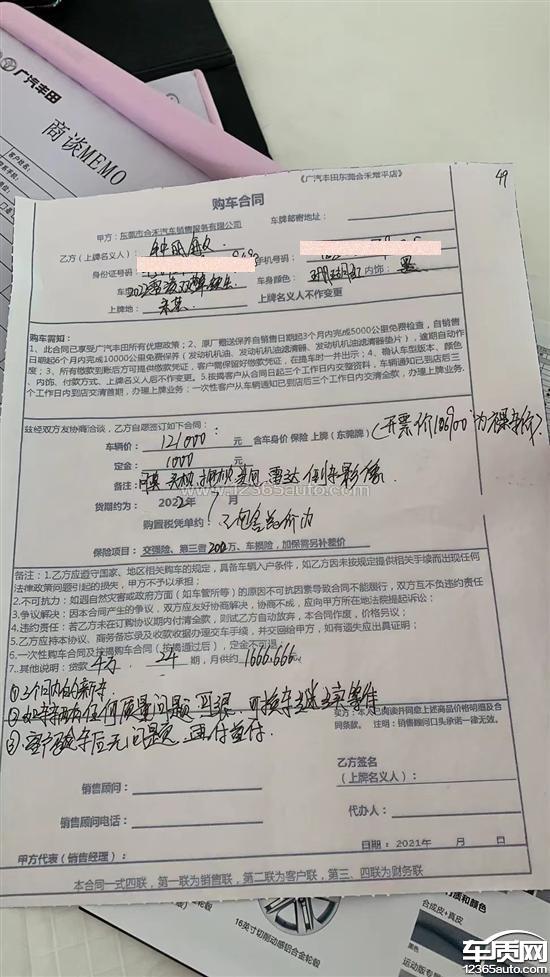 广汽丰田
商谈MEMO
《广汽丰田东莞合禾常平店》
49
购车合同
甲方：东莞市合禾汽车销售服务有限公司
车牌邮寄地址：
乙方（上牌名义人）
身份证号码：
手机号码：
车身颜色：
内饰：黑
上牌地：
上牌名义人不作变更
购车需知：
1、此合同已享受广汽丰田所有优惠政策；2、原厂赠送保养自销售日期起3个月内完成5000公里免费检查，自销售
日期起6个月内完成10000公里免费保养（发动机机油、发动机机油滤清器、机油滤清器垫片），逾期自动作
废；3、所有缴款到账后方可提供缴款凭证，客户需保留好缴款凭证，在提车时一并出示；4、确认车型版本、颜色
、内饰、付款方式、上牌名义人后不作变更。5、按揭客户从合同日起三个工作日内交整资料，车辆通知已到店后三
个工作日内到店交清首期，办理上牌业务；一次性客户从车辆通知已到店后三个工作日内交清全款，办理上牌业务。
兹经双方友协商洽谈，乙方自愿签订如下合同：
车辆价：121000 元 含车身价 保险 上牌（东莞牌）（开票价106900为裸车价）
定金：1000 元
备注：雷达 倒车影像
www.12365auto.com
货期约为：2022年7月
购置税凭单约：已包含总价内
保险项目：交强险、第三者200万、车损险，加保需另补差价
备注：1.乙方应遵守国家、地区相关购车的规定，具备车辆入户条件，如乙方因未按规定提供相关手续而出现任何
法律政策问题引起的损失，甲方不予以承担；
2.不可抗力：如遇自然灾害或政府方面（如车管所等）的原因不可抗因素导致合同不能履行，双方互不负违约责任
3.争议解决：因本合同产生的争议，双方应友好协商解决，协商不成，应向甲方所在地法院提起诉讼；
4.违约责任：若乙方未在订购协议期内付清全款，则试乙方自动放弃，本合同作废，价格另议；
5.乙方应持本协议、商务备忘录及收款收据办理交车手续，并交回给甲方，如有遗失应出具证明；
6.一次性购车合同及按揭购车合同（按揭通过后），定金不可退；
7.其他说明：贷款4万，24期，月供约1666.666元
①3个月内的新车
②如车辆有任何质量问题可退，可换车
③客户验车后无问题
买方：本人已阅读并同意上述商品价格明细及合
同条款。 注明：销售顾问口头承诺一律无效。
乙方签名
（上牌名义人）：
销售顾问：
代办人：
销售顾问电话：
日期：2021年 月 日
甲方代表（销售经理）：
本合同一式四联，第一联为销售联，第二联为客户联，第三、四联为财务联
16英寸切削动感铝合金轮毂
材质和颜色
合成皮+真皮
黑色
运动版专
车质网
12365auto.com